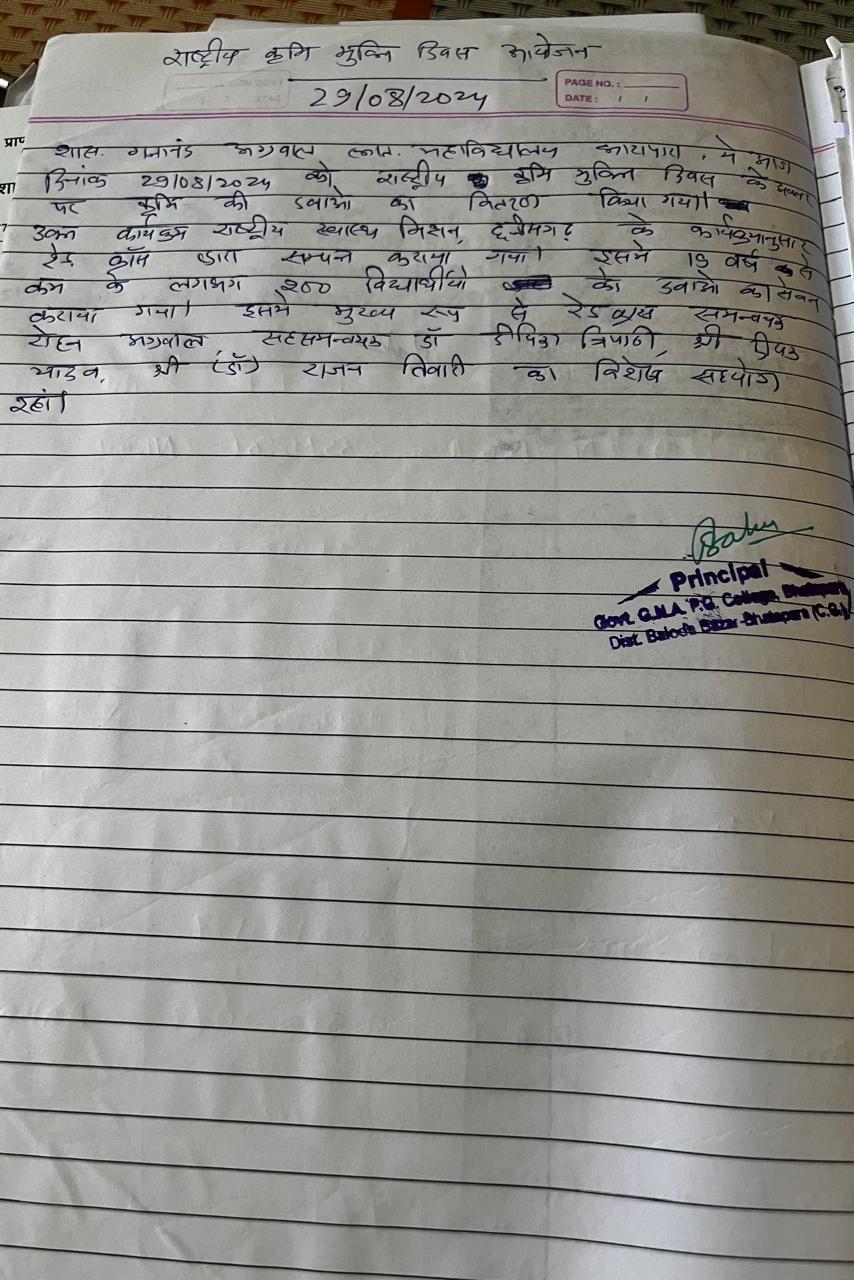 राष्ट्रीय कृमि मुक्ति दिवस आयोजन
29/08/2024
PAGE NO.:
DATE: / /
शास. गजानंद अग्रवाल स्नात. महाविद्यालय भाटापारा, में आज
दिनांक 29/08/2024 को राष्ट्रीय कृमि मुक्ति दिवस के
पर कृमि की दवाओ का वितरण किया गया।
उक्त कार्यक्रम राष्ट्रीय स्वास्थ्य मिशन, छत्तीसगढ़ के कार्यक्रमानुसार
रेड क्रॉस द्वारा सम्पन्न कराया गया। इसमे 19 वर्ष से
कम के लगभग २०० विद्यार्थीयो को दवाओ का सेवन
कराया गया। इसमे मुख्य रूप से रेडक्रास समन्वयक
रोहन अग्रवाल, सहसमन्वयक डॉ दीपिका त्रिपाठी, श्री दीपक
यादव, श्री (डॉ) राजन तिवारी का विशेष सहयोग
रहा।
Principal
Govt. G.N.A. P.G. College, Bhatapara
Dist. Baloda Bazar-Bhatapara (C.G.)